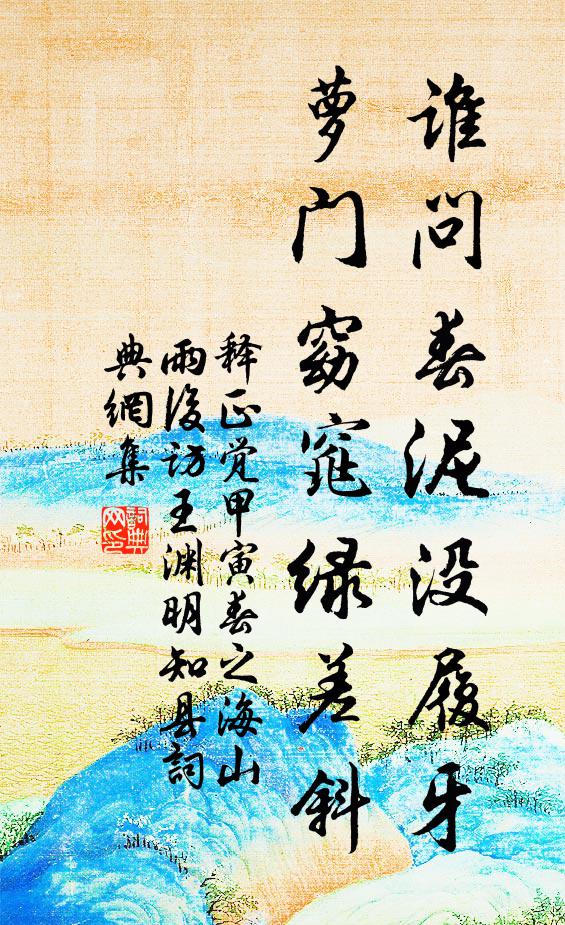 谁问春泥没履牙
萝门窈窕绿差斜
释正觉甲寅春之海山
雨後访王渊明知县詞
典網集
詞典
网印